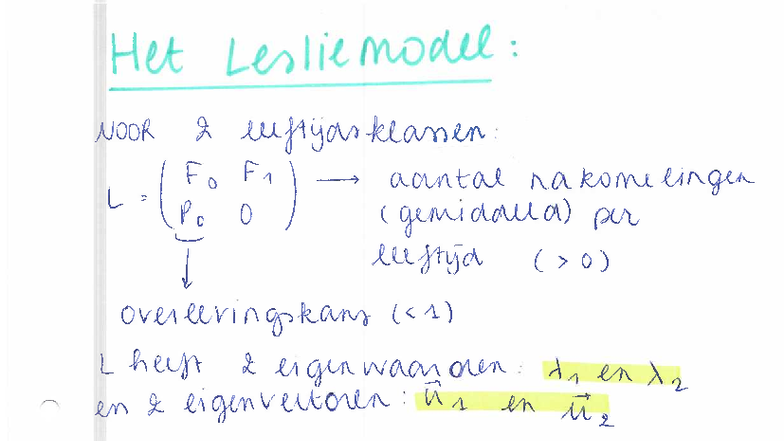 Het Lesliemodel:
VOOR 2 leeftijdsklassen:
L = ( F0 F1 ) → aantal nakomelingen
( P0 0 ) (gemiddeld) per
leeftijd (>0)
↓
overlevingskans (<1)
L heeft 2 eigenwaarden: λ1 en λ2
en 2 eigenvectoren: u⃗1 en u⃗2